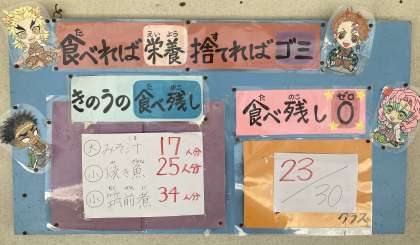 食べれば栄養捨てればゴミ
きのうの食べ残し
大 みそ汁 17人分
小 焼き魚 25人分
小 筑前煮 34人分
食べ残し0
23/30
クラス